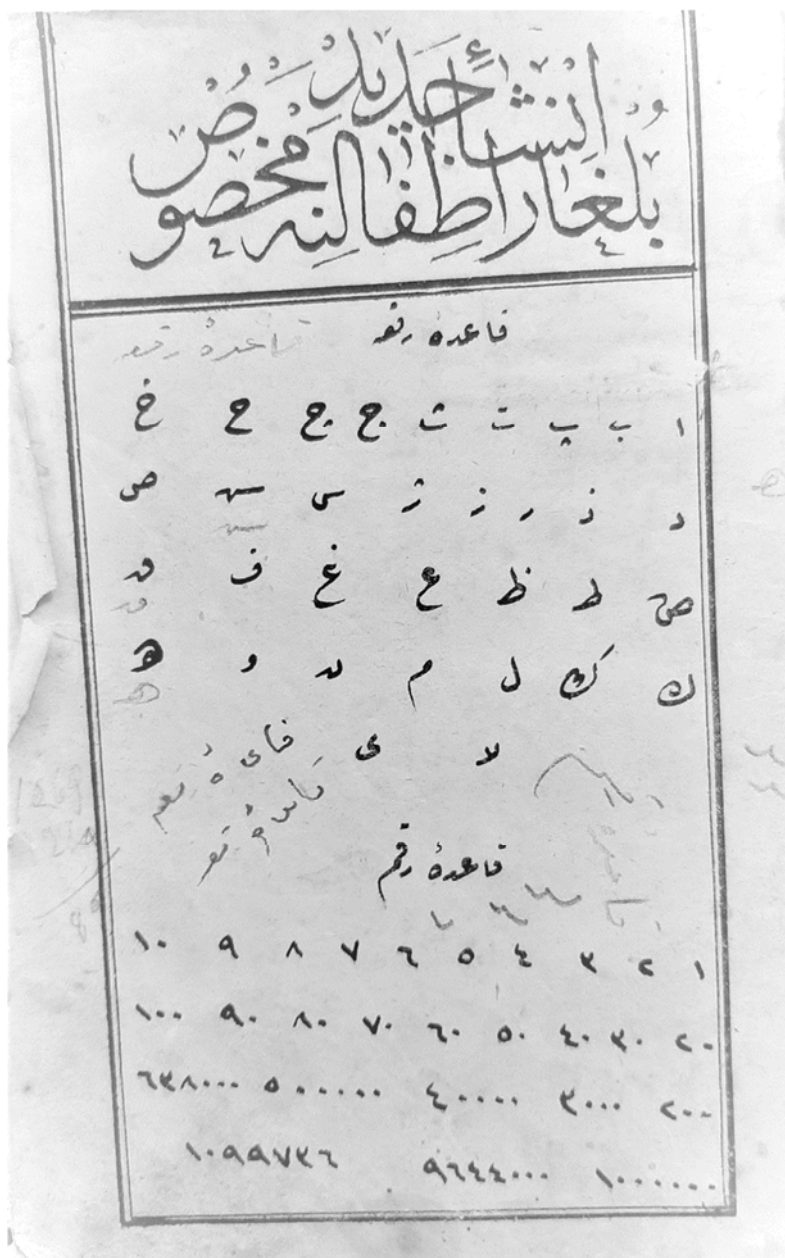 انشأ جديد
بلغار اطفالنه مخصوص
قاعدهٔ رقعه قاعدهٔ رقعه
ا ب پ ت ث ج چ ح خ
د ذ ر ز ژ س ش ص
ض ط ظ ع غ ف ق
ك گ ل م ن و ه
لا ى
قاعدهٔ رقم
١ ٢ ٣ ٤ ٥ ٦ ٧ ٨ ٩ ١٠
٢٠ ٣٠ ٤٠ ٥٠ ٦٠ ٧٠ ٨٠ ٩٠ ١٠٠
٢٠٠ ٣٠٠٠ ٤٠٠٠٠ ٥٠٠٠٠٠ ٦٣٨٠٠٠
١٠٠٠٠٠٠ ٩٦٤٤٠٠٠ ١٠٩٩٧٣٦